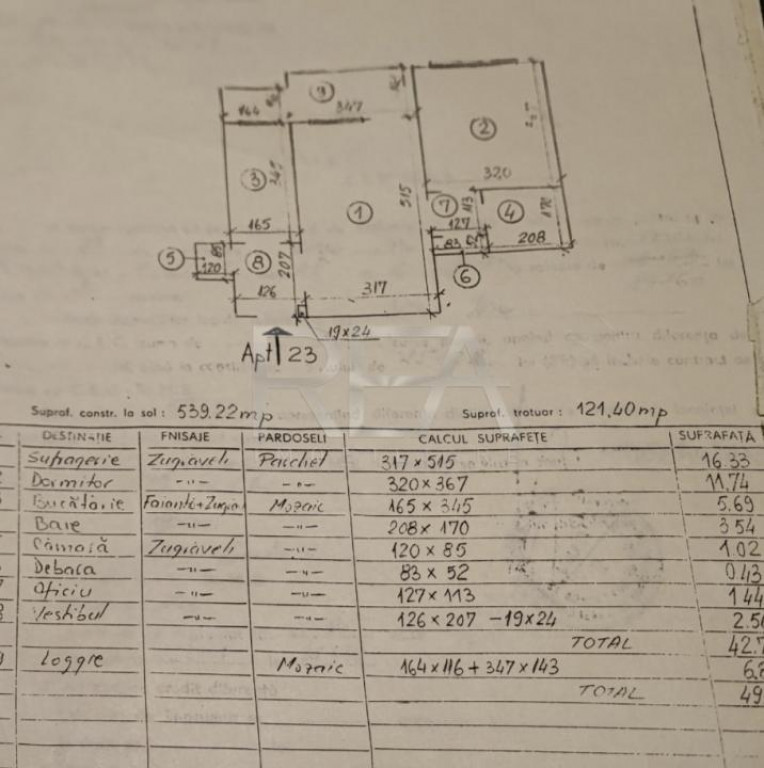 9
164
347
2
320
3
345
1
515
7
113
4
170
127
165
5
85
120
8
207
83
52
208
6
126
317
19x24
Apt 23
REA
Supraf. constr. la sol : 539.22mp Supraf. trotuar : 121,40mp
DESTINAȚIE FNISAJE PARDOSELI CALCUL SUPRAFEȚE SUFRAFAȚĂ
Sufragerie Zugraveli Parchet 317 x 515 16.33
Dormitor -"- -"- 320 x 367 11,74
Bucătărie Faianță+Zugră Mozaic 165 x 345 5.69
Baie -"- -"- 208 x 170 3.54
Cămară Zugraveli -"- 120 x 85 1.02
Debara -"- -"- 83 x 52 0.43
Oficiu -"- -"- 127 x 113 1.44
8 Vestibul -"- -"- 126 x 207 - 19x24 2.5
TOTAL 42.7
Loggie Mozaic 164 x 116 + 347 x 143 6,
TOTAL 49